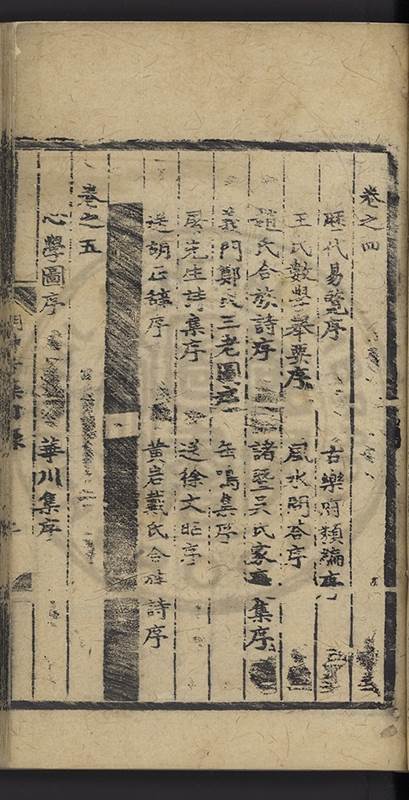 卷之四
歷代易覽序 古樂府類編序
王氏數學舉要序 風水問答序
趙氏合族詩序 諸暨吳氏家 集序
義門鄭氏三老圖序 缶鳴集序
先生詩集序 送徐文 序
送胡 序 黃岩戴氏合族詩序
卷之五
心學圖序 華川集序